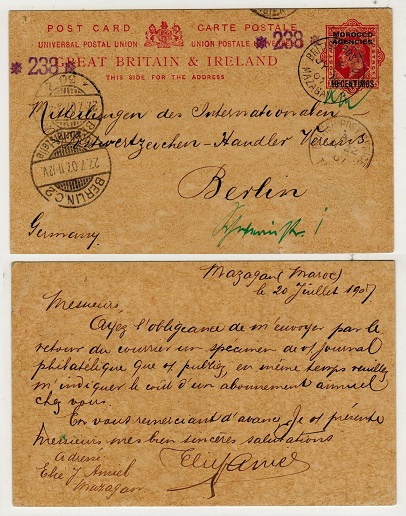 POST CARD CARTE POSTALE
UNIVERSAL POSTAL UNION UNION POSTALE
*238* *238*
GREAT BRITAIN & IRELAND
THIS SIDE FOR THE ADDRESS
MOROCCO
AGENCIES
10 CENTIMOS
MAZAGAN
Mitteilungen des Internationalen
Postwertzeichen-Händler Vereins
Berlin
Germany
BERLIN.C.2
27.7.07.11-12V.
Mazagan (Maroc)
le 20 Juillet 1907
Messieurs
Ayez l'obligeance de m'envoyer par le
retour du courrier un specimen de vs/ journal
philatélique que vs/ publiez, en même temps veuillez
m'indiquer le coût d'un abonnement annuel
chez vous.
En vous remerciant d'avance, Je vs/ présente
Messieurs mes bien sincères salutations
adresse
Elie J. Amiel
Mazagan